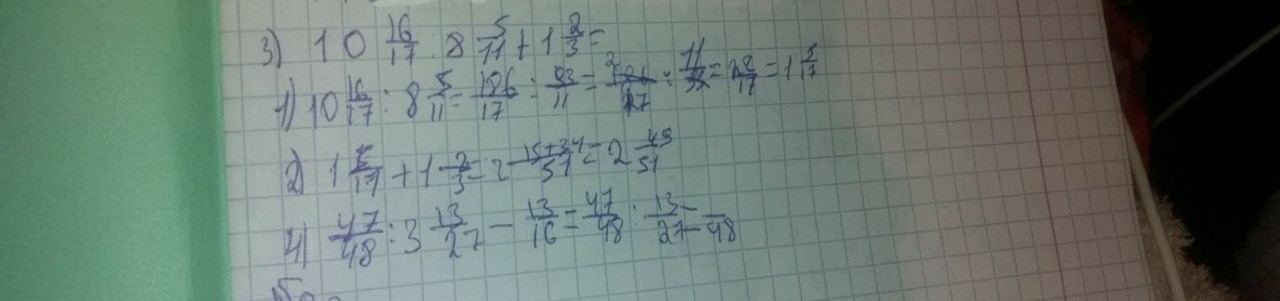 3) 10 16/17 : 8 5/11 + 1 2/3 =
1) 10 16/17 : 8 5/11 = 186/17 : 93/11 = 186/17 · 11/93 = 22/17 = 1 5/17
2) 1 5/17 + 1 2/3 = 2 15+34/51 = 2 49/51
4) 47/48 : 3 13/27 - 13/16 = 47/48 : 13/27 = /48